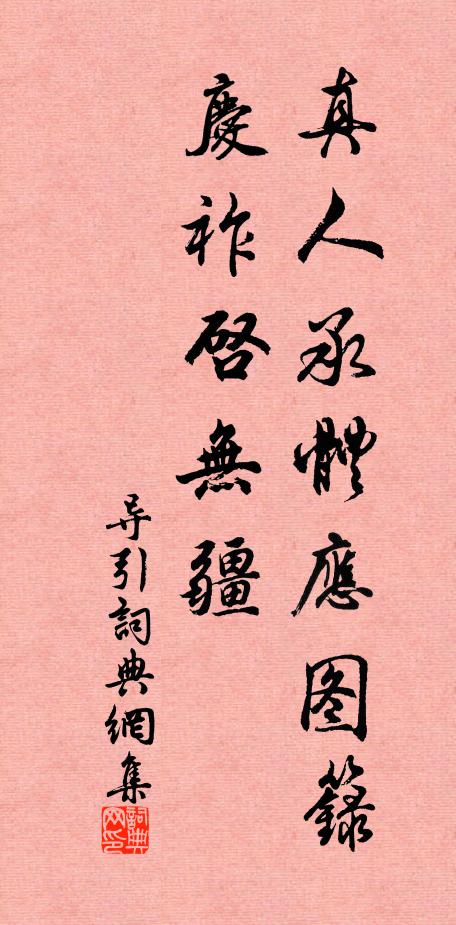 真人承體應图籙
慶祚啓無疆
导引詞典網集
詞典网印